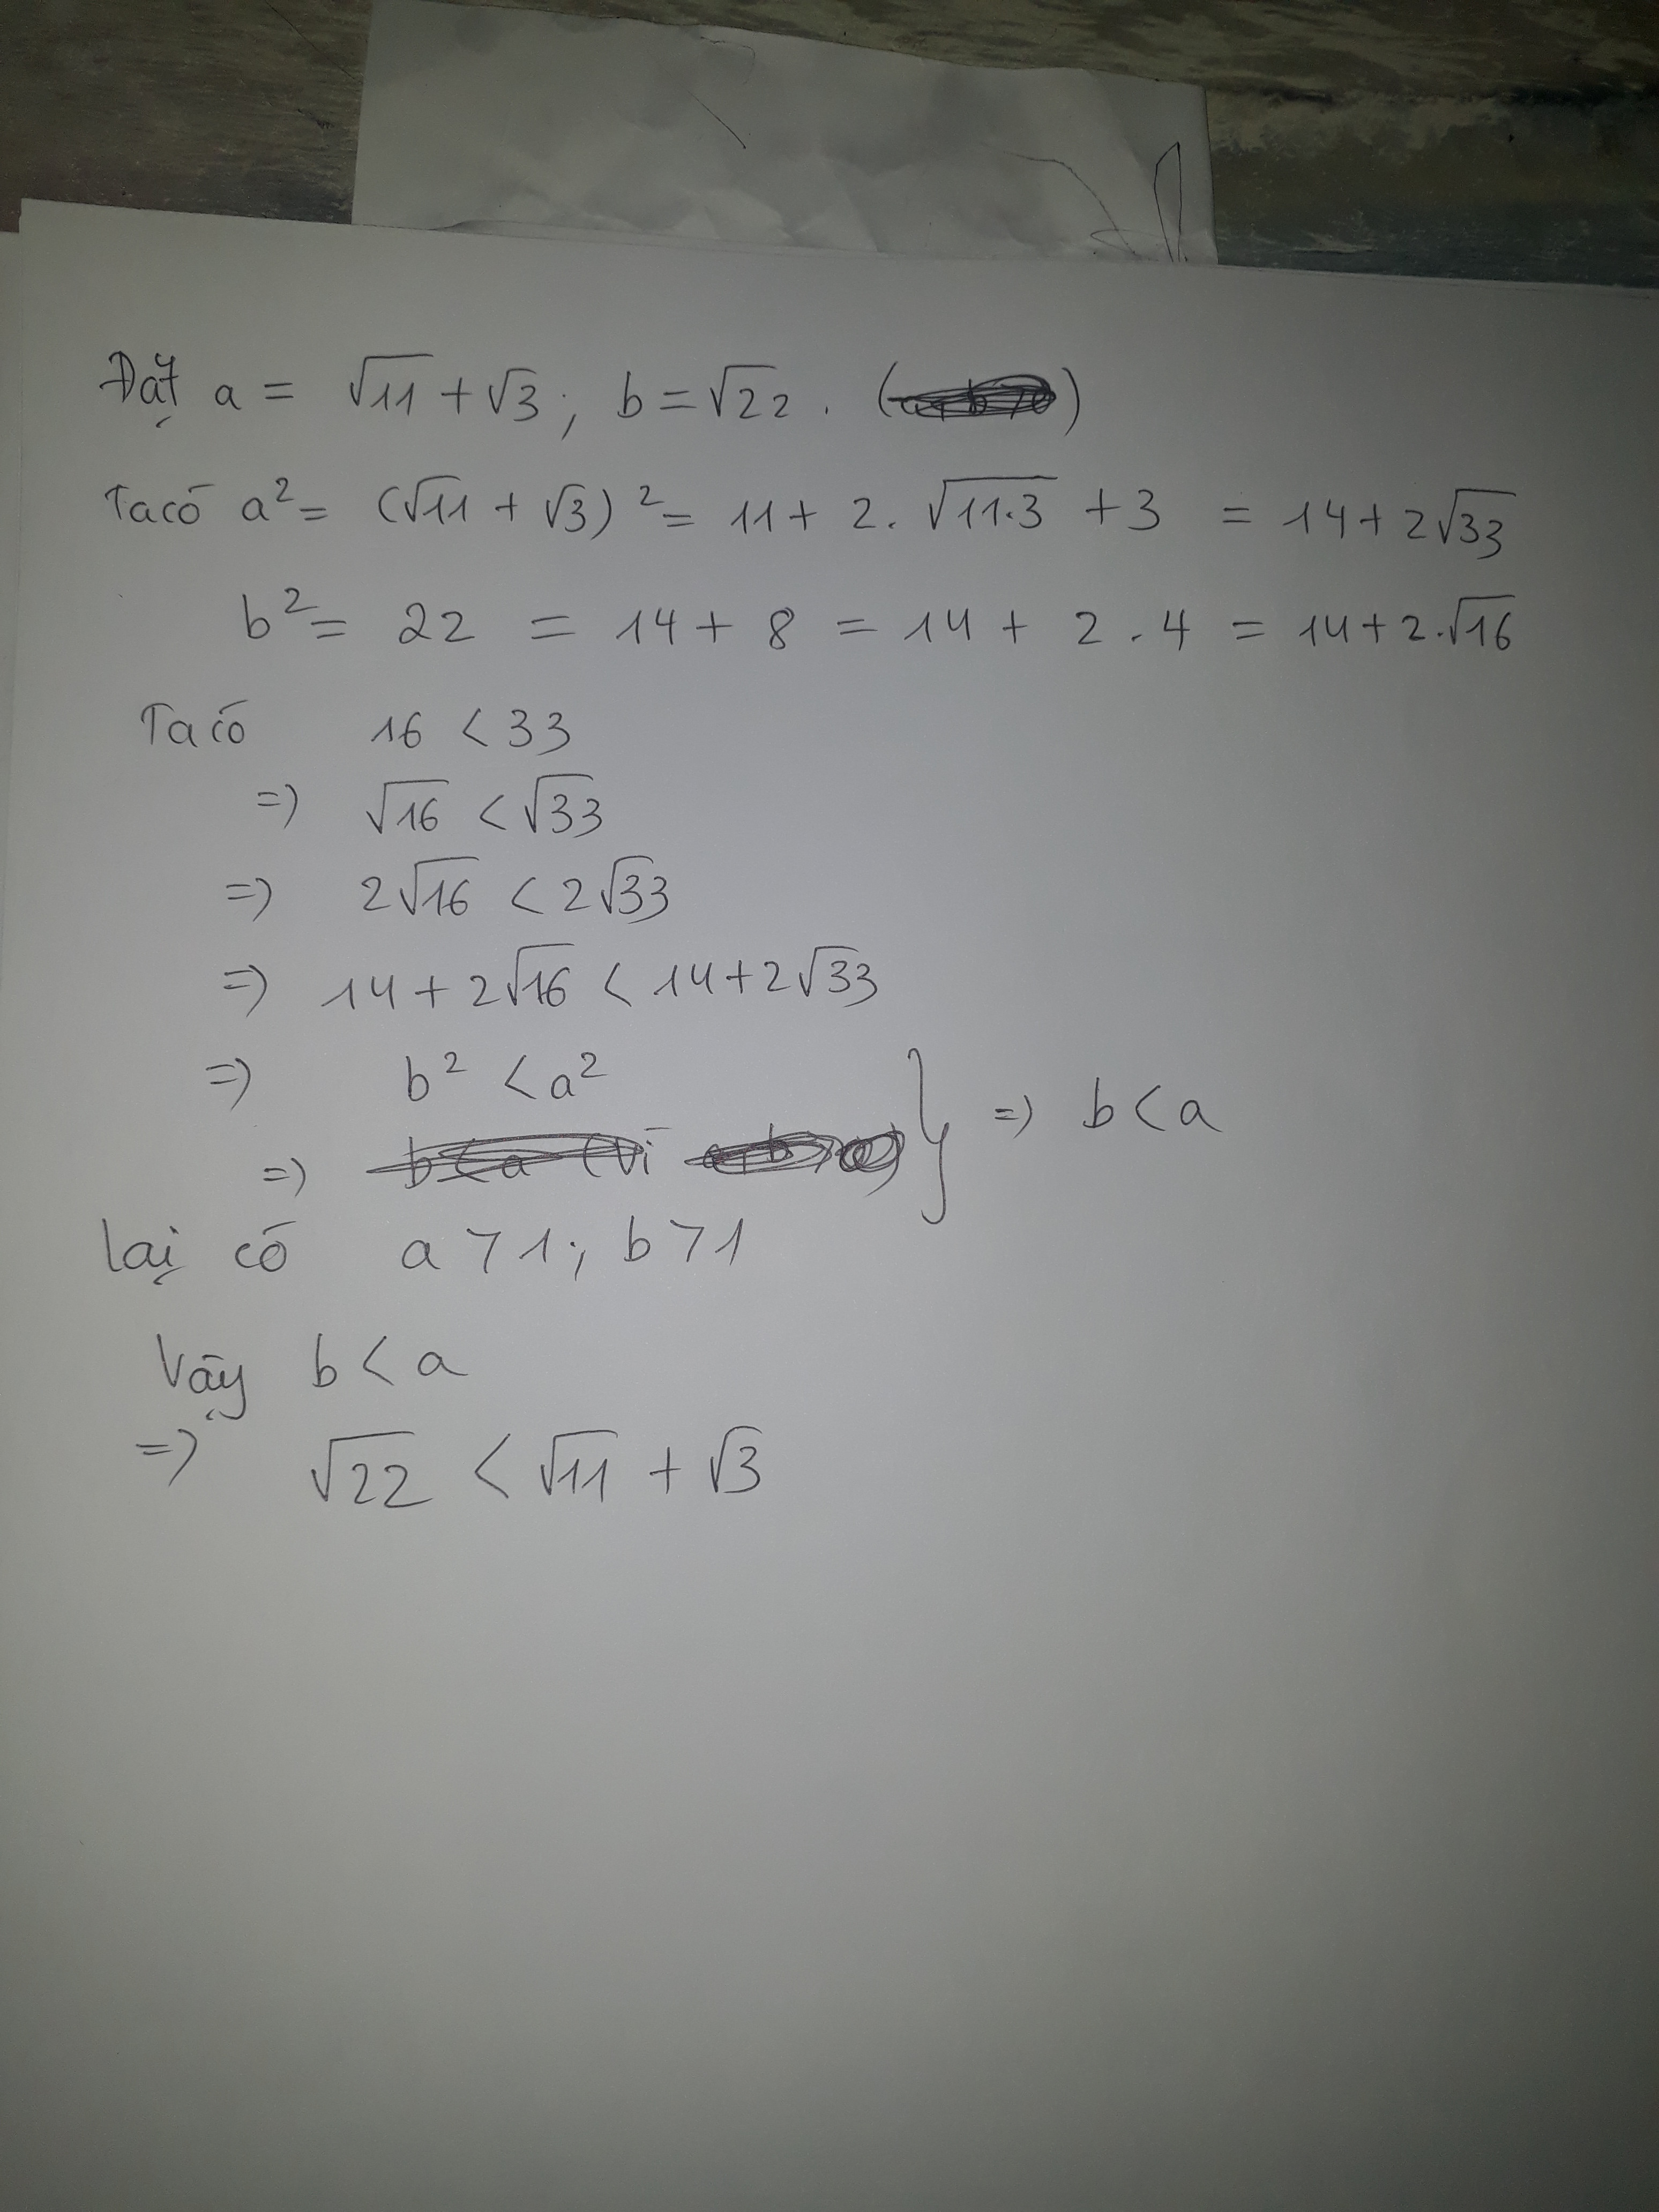 Đặt a = √11 + √3; b = √22. ( )
Ta có a² = (√11 + √3)² = 11 + 2.√11.3 + 3 = 14 + 2√33
b² = 22 = 14 + 8 = 14 + 2.4 = 14 + 2.√16
Ta có 16 < 33
=) √16 < √33
=) 2√16 < 2√33
=) 14 + 2√16 < 14 + 2√33
=) b² < a² } =) b < a
=) b < a (vì
lại có a > 1; b > 1
Vậy b < a
=) √22 < √11 + √3